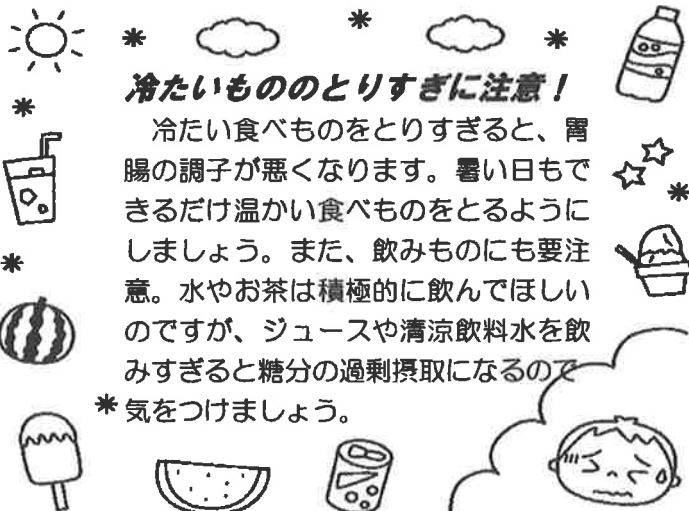 冷たいもののとりすぎに注意！
　冷たい食べものをとりすぎると、胃
腸の調子が悪くなります。暑い日もで
きるだけ温かい食べものをとるように
しましょう。また、飲みものにも要注
意。水やお茶は積極的に飲んでほしい
のですが、ジュースや清涼飲料水を飲
みすぎると糖分の過剰摂取になるので
気をつけましょう。